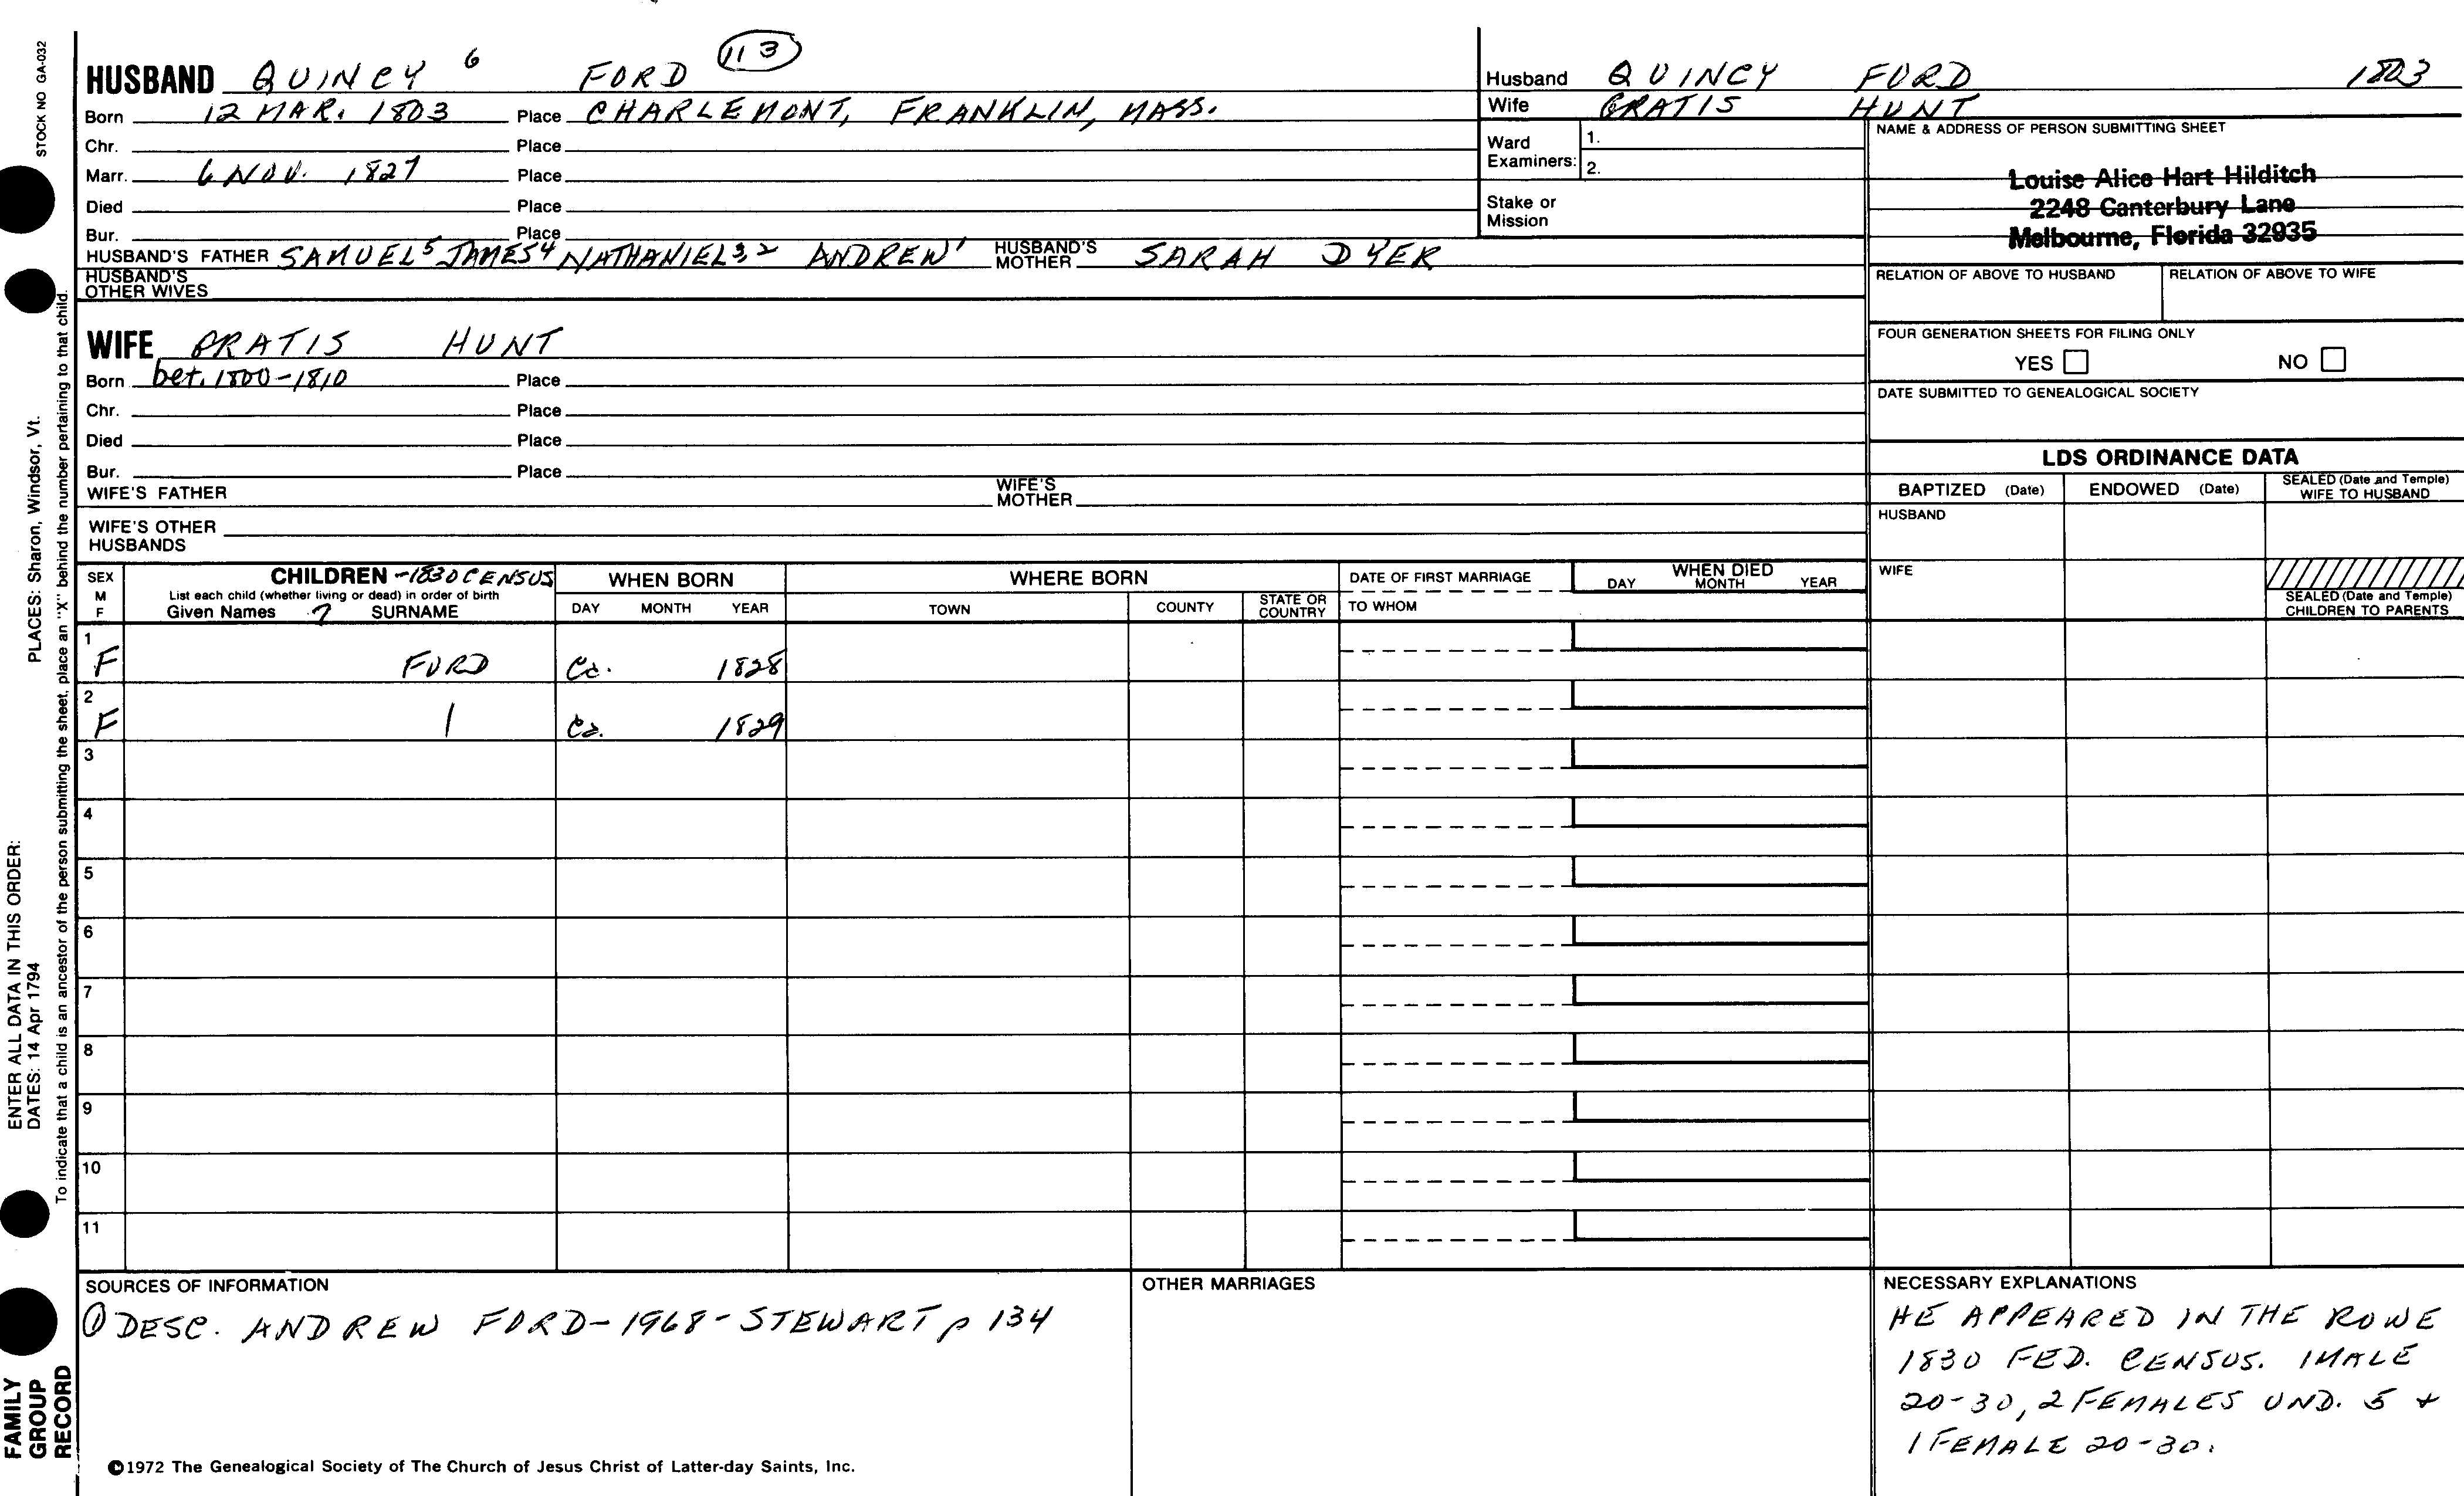 STOCK NO GA-032
HUSBAND QUINCY 6 FORD 113
Born 12 MAR. 1803 Place CHARLEMONT, FRANKLIN, MASS.
Chr. Place
Marr. 6 NOV. 1827 Place
Died Place
Bur. Place
HUSBAND'S FATHER SAMUEL5 JAMES4 NATHANIEL3,2 ANDREW1 HUSBAND'S MOTHER SARAH DYER
HUSBAND'S OTHER WIVES
WIFE GRATIS HUNT
Born bet. 1800-1810 Place
Chr. Place
Died Place
Bur. Place
WIFE'S FATHER WIFE'S MOTHER
WIFE'S OTHER HUSBANDS
Husband QUINCY FORD 1803
Wife GRATIS HUNT
Ward Examiners: 1.
2.
Stake or Mission
NAME & ADDRESS OF PERSON SUBMITTING SHEET
Louise Alice Hart Hilditch
2248 Canterbury Lane
Melbourne, Florida 32935
RELATION OF ABOVE TO HUSBAND RELATION OF ABOVE TO WIFE
FOUR GENERATION SHEETS FOR FILING ONLY
YES NO
DATE SUBMITTED TO GENEALOGICAL SOCIETY
LDS ORDINANCE DATA
BAPTIZED (Date) ENDOWED (Date) SEALED (Date and Temple) WIFE TO HUSBAND
HUSBAND
WIFE
SEALED (Date and Temple) CHILDREN TO PARENTS
SEX M F
CHILDREN -1830 CENSUS
List each child (whether living or dead) in order of birth
Given Names ? SURNAME
WHEN BORN
DAY MONTH YEAR
WHERE BORN
TOWN COUNTY STATE OR COUNTRY
DATE OF FIRST MARRIAGE
TO WHOM
WHEN DIED
DAY MONTH YEAR
1 F FORD Ca. 1828
2 F | Ca. 1829
3
4
5
6
7
8
9
10
11
SOURCES OF INFORMATION
① DESC. ANDREW FORD-1968-STEWART p 134
OTHER MARRIAGES
NECESSARY EXPLANATIONS
HE APPEARED IN THE ROWE
1830 FED. CENSUS. 1 MALE
20-30, 2 FEMALES UND. 5 +
1 FEMALE 20-30.
©1972 The Genealogical Society of The Church of Jesus Christ of Latter-day Saints, Inc.
FAMILY
GROUP
RECORD
ENTER ALL DATA IN THIS ORDER:
DATES: 14 Apr 1794 PLACES: Sharon, Windsor, Vt.
To indicate that a child is an ancestor of the person submitting the sheet, place an "X" behind the number pertaining to that child.